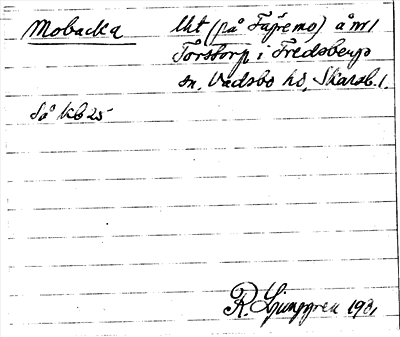 Mobacka lht (på Fägremo) å nr 1
Torstorp i Fredsbergs
sn, Vadsbo hd, Skarab. l.
Så kb 25
R. Ljunggren 1981